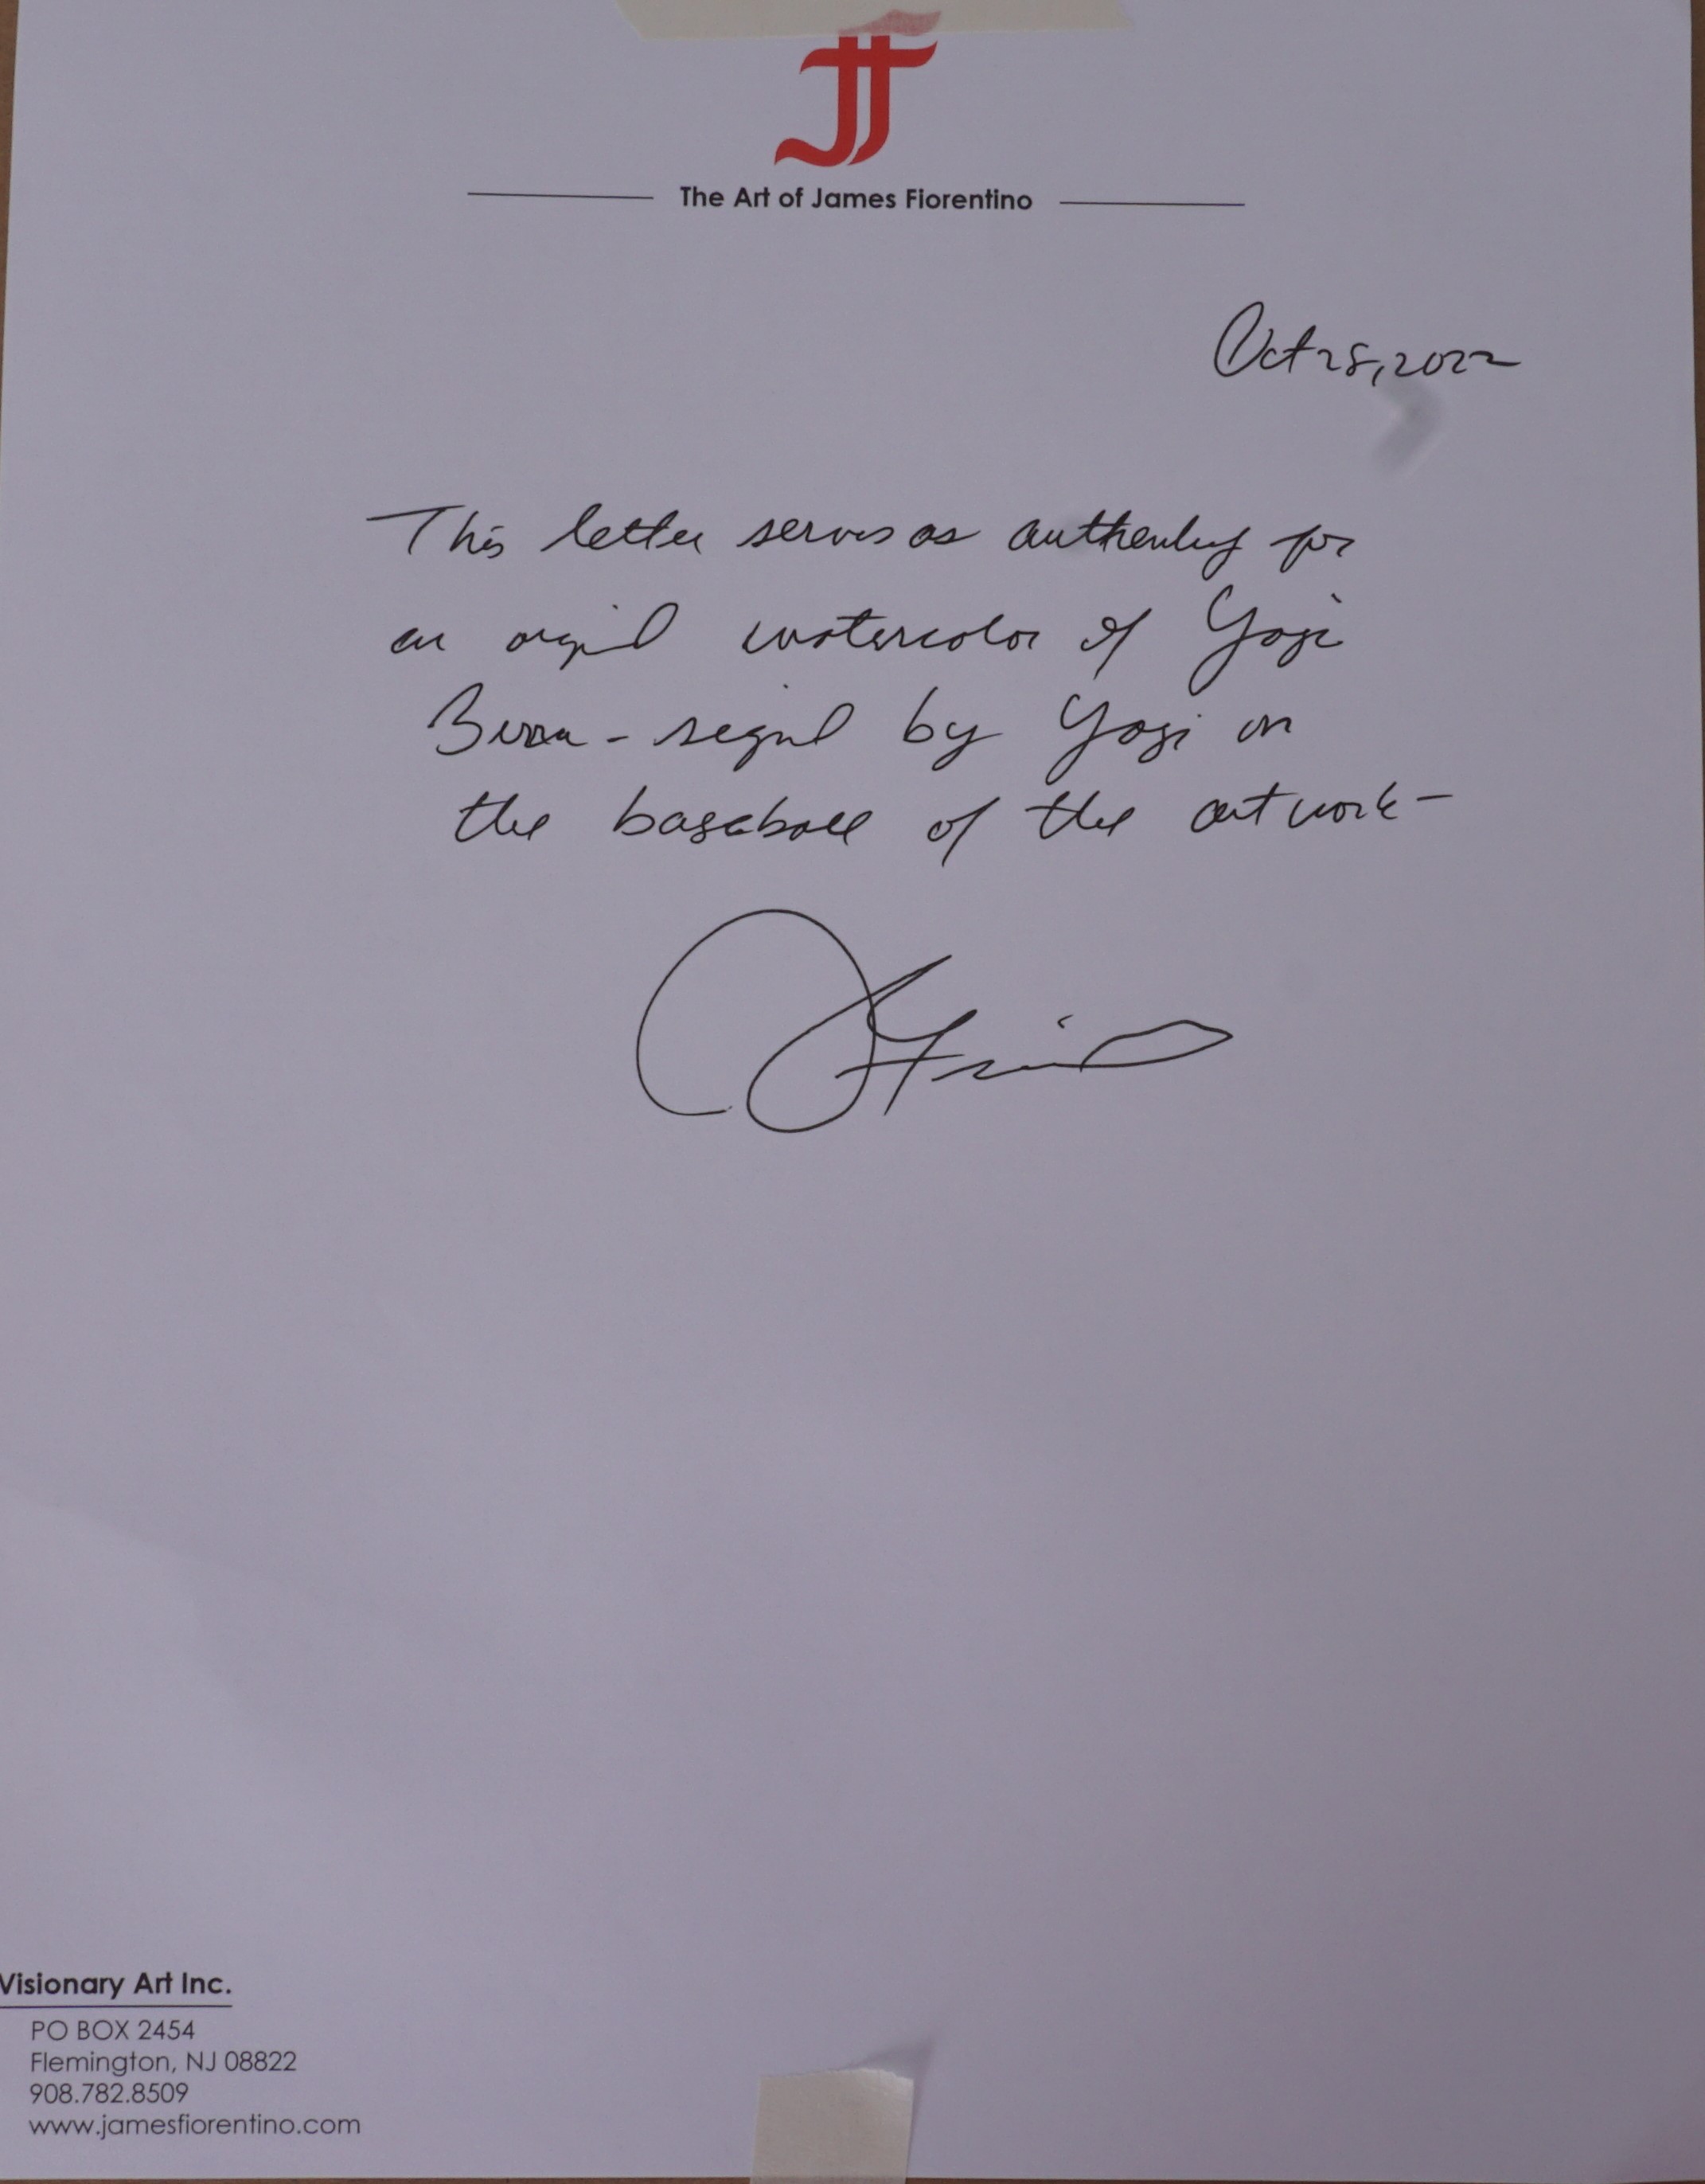 JF
The Art of James Fiorentino
Oct 28, 2022
This letter serves as authenticity for
an original watercolor of Yogi
Berra - signed by Yogi on
the baseball of the artwork -
Visionary Art Inc.
PO BOX 2454
Flemington, NJ 08822
908.782.8509
www.jamesfiorentino.com